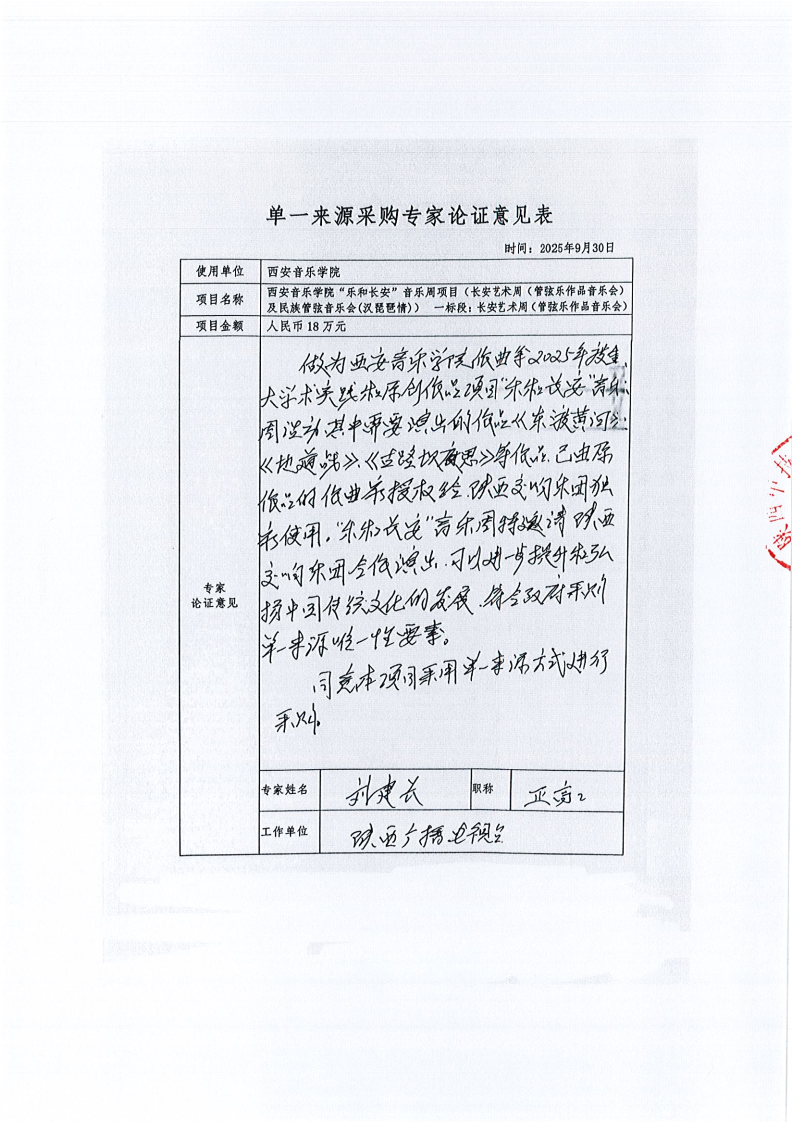 单一来源采购专家论证意见表
时间：2025年9月30日
使用单位 西安音乐学院
项目名称 西安音乐学院“乐和长安”音乐周项目（长安艺术周（管弦乐作品音乐会）
及民族管弦音乐会(汉琵琶情)） 一标段：长安艺术周（管弦乐作品音乐会）
项目金额 人民币18万元
专家
论证意见
做为西安音乐学院作曲系2025年
大学术实践和原创作品项目“乐和长安”音乐
周活动,其中需要演出的作品《东渡黄河》、
《地道战》、《古路坎夜思》等作品,已由原
作品的作曲家授权给陕西交响乐团独
家使用。“乐和长安”音乐周特邀请陕西
交响乐团合作演出,可以进一步提升和弘
扬中国传统文化的发展,符合政府采购
单一来源唯一性要素。
同意本项目采用单一来源方式进行
采购。
专家姓名 刘建长 职称 正高二
工作单位 陕西广播电视台